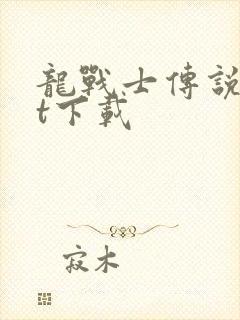 龍戰士傳説
t下載
寂木